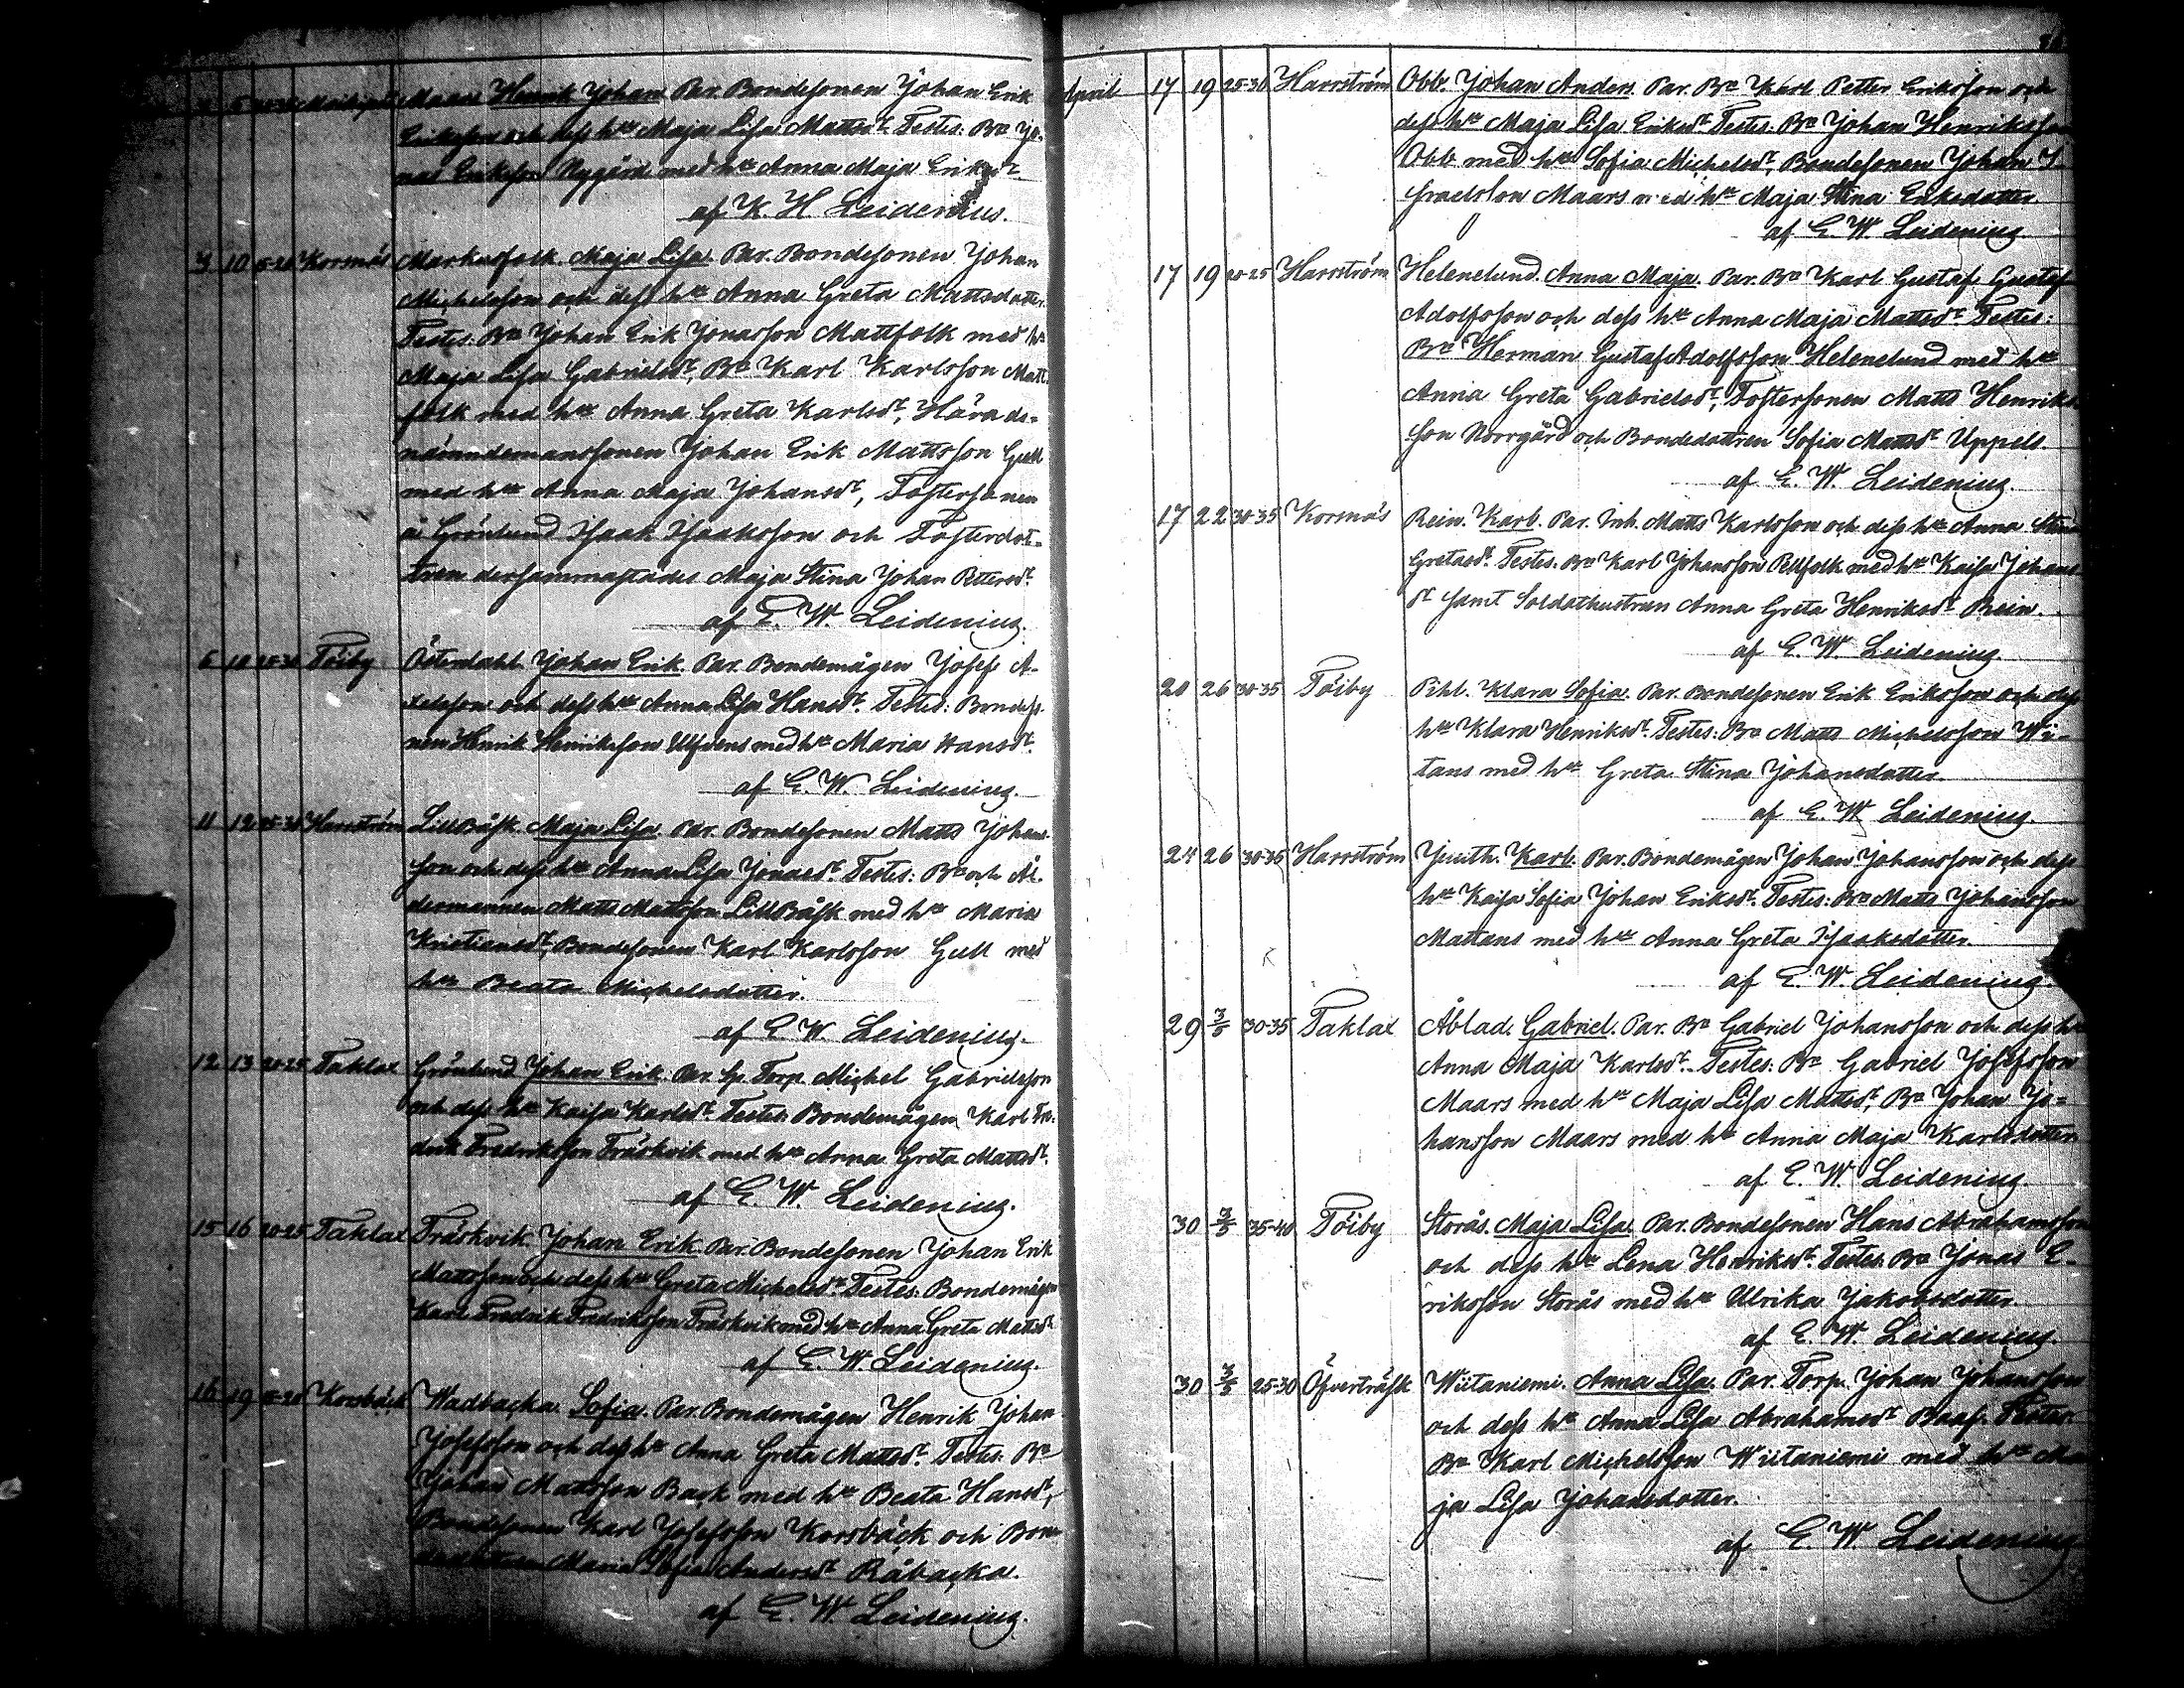 Maars Henrik Johan Par. Bondesonen Johan Erik
Eriksson och dess hu Maja Lisa Mattsdr. Testes: Bn Jo-
nas Eriksson Nygård med hu Anna Maja Eriksdr.
af K. H. Leidenius.
3 10 15-20 Korsnäs Markusfolk. Maja Lisa. Par. Bondesonen Johan
Michelsson och dess hu Anna Greta Mattsdotter
Testes: Bn Johan Erik Jonasson Mattfolk med hu
Maja Lisa Gabrielsdr, Bn Karl Karlsson Matt-
folk med hu Anna Greta Karlsdr, Härads-
nämndemanssonen Johan Erik Mattsson Gull
med hu Anna Maja Johansdr, Fostersonen
å Grönlund Isaak Isaaksson och Fosterdot-
tren dersammastädes Maja Stina Johan Pettersdr.
af E. W. Leidenius.
6 10 25-30 Töiby Österdahl. Johan Erik. Par. Bondemågen Josef A-
xelsson och dess hu Anna Lisa Hansdr. Testes: Bondeso-
nen Henrik Henriksson Ulfvens med hu Maria Hansdr.
af E. W. Leidenius.
11 12 25-30 Harrström LillBåsk. Maja Lisa. Par. Bondesonen Matts Johans-
son och dess hu Anna Lisa Jonasdr. Testes: Bn och Ål-
dermannen Matts Mattsson LillBåsk med hu Maria
Kristiansdr, Bondesonen Karl Karlsson Gull med
hu Beata Michelsdotter.
af E. W. Leidenius.
12 13 20-25 Taklax Grönlund Johan Erik. Par. Sp. Torp. Michel Gabrielsson
och dess hu Kaisa Karlsdr. Testes: Bondemågen Karl Fre-
drik Fredriksson Träskvik med hu Anna Greta Mattsdr.
af E. W. Leidenius.
15 16 20-25 Taklax Träskvik. Johan Erik. Par. Bondesonen Johan Erik
Mattsson och dess hu Greta Michelsdr. Testes: Bondemågen
Karl Fredrik Fredriksson Träskvik med hu Anna Greta Mattsdr
af E. W. Leidenius.
16 19 15-20 Korsbäck Wadbacka. Sofia. Par. Bondemågen Henrik Johan
Josefsson och dess hu Anna Greta Mattsdr. Testes: Bn
Johan Mattsson Back med hu Beata Hansdr,
Bondesonen Karl Josefsson Korsbäck och Bon-
dedottren Maria Sofia Andersdr Råbacka.
af E. W. Leidenius.
April 17 19 25-30 Harrström Obb. Johan Anders. Par. Bn Karl Petter Eriksson och
dess hu Maja Lisa Eriksdr. Testes: Bn Johan Henriksson
Obb med hu Sofia Michelsdr, Bondesonen Johan I-
sraelsson Maars med hu Maja Stina Eriksdotter
af E. W. Leidenius.
17 19 20-25 Harrström Helenelund. Anna Maja. Par. Bn Karl Gustaf Gustaf
Adolfsson och dess hu Anna Maja Mattsdr. Testes:
Bn Herman Gustaf Adolfsson Helenelund med hu
Anna Greta Gabrielsdr, Fostersonen Matts Henriks-
son Norrgård och Bondedottren Sofia Mattsdr Uppels.
af E. W. Leidenius.
17 22 30-35 Korsnäs Rein. Karl. Par. Inh. Matts Karlsson och dess hu Anna Stina
Gretasdr. Testes: Bn Karl Johansson Pellfolk med hu Kaisa Johans-
dr samt Soldathustrun Anna Greta Henriksdr Rein.
af E. W. Leidenius.
20 26 30-35 Töiby Pihl. Klara Sofia. Par. Bondesonen Erik Eriksson och dess
hu Klara Henriksdr. Testes: Bn Matts Michelsson Wi-
tans med hu Greta Stina Johansdotter
af E. W. Leidenius.
24 26 30-35 Harrström Juuth. Karl. Par. Bondemågen Johan Johansson och dess
hu Kaisa Sofia Johan Eriksdr. Testes: Bn Matts Johansson
Mattans med hu Anna Greta Isaaksdotter.
af E. W. Leidenius.
29 3/5 30-35 Taklax Åblad. Gabriel. Par. Bn Gabriel Johansson och dess hu
Anna Maja Karlsdr. Testes: Bn Gabriel Josefsson
Maars med hu Maja Lisa Mattsdr, Bn Johan Jo-
hansson Maars med hu Anna Maja Karlsdotter
af E. W. Leidenius
30 3/5 35-40 Töiby Storås. Maja Lisa. Par. Bondesonen Hans Abrahamsson
och dess hu Lena Henriksdr. Testes: Bn Jonas E-
riksson Storås med hu Ulrika Jakobsdotter.
af E. W. Leidenius.
30 3/5 25-30 Öfverträsk Wiitaniemi. Anna Lisa. Par. Torp. Johan Johansson
och dess hu Anna Lisa Abrahamsdr Baas. Testes:
Bn Karl Michelsson Wiitaniemi med hu Ma-
ja Lisa Johansdotter.
af E. W. Leidenius